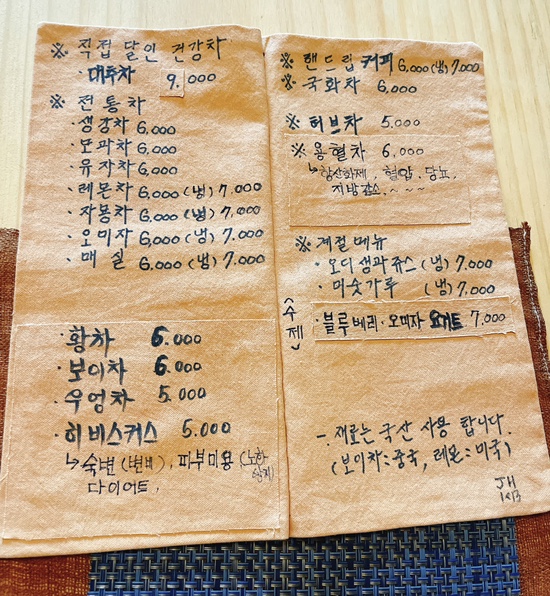 ※ 직접 달인 건강차
· 대추차 9.000
※ 전통차
· 생강차 6,000
· 모과차 6,000
· 유자차 6.000
· 레몬차 6,000 (냉) 7,000
· 자몽차 6,000 (냉) 7,000
· 오미자 6,000 (냉) 7.000
· 매실 6.000 (냉) 7.000
· 황차 6.000
· 보이차 6.000
· 우엉차 5.000
· 히비스커스 5.000
↳ 숙변 (변비), 피부미용 (노화
다이어트.
※ 핸드립 커피 6,000 (냉) 7,000
※ 국화차 6,000
※ 허브차 5.000
※ 용혈차 6,000
↳ 항산화제, 혈압, 당뇨,
지방감소.~~~
※ 계절메뉴
· 오디생과쥬스 (냉) 7.000
· 미숫가루 (냉) 7.000
(수제)
· 블루베리·오미자 요거트 7,000
- 재료는 국산 사용 합니다.
(보이차:중국, 레몬:미국)